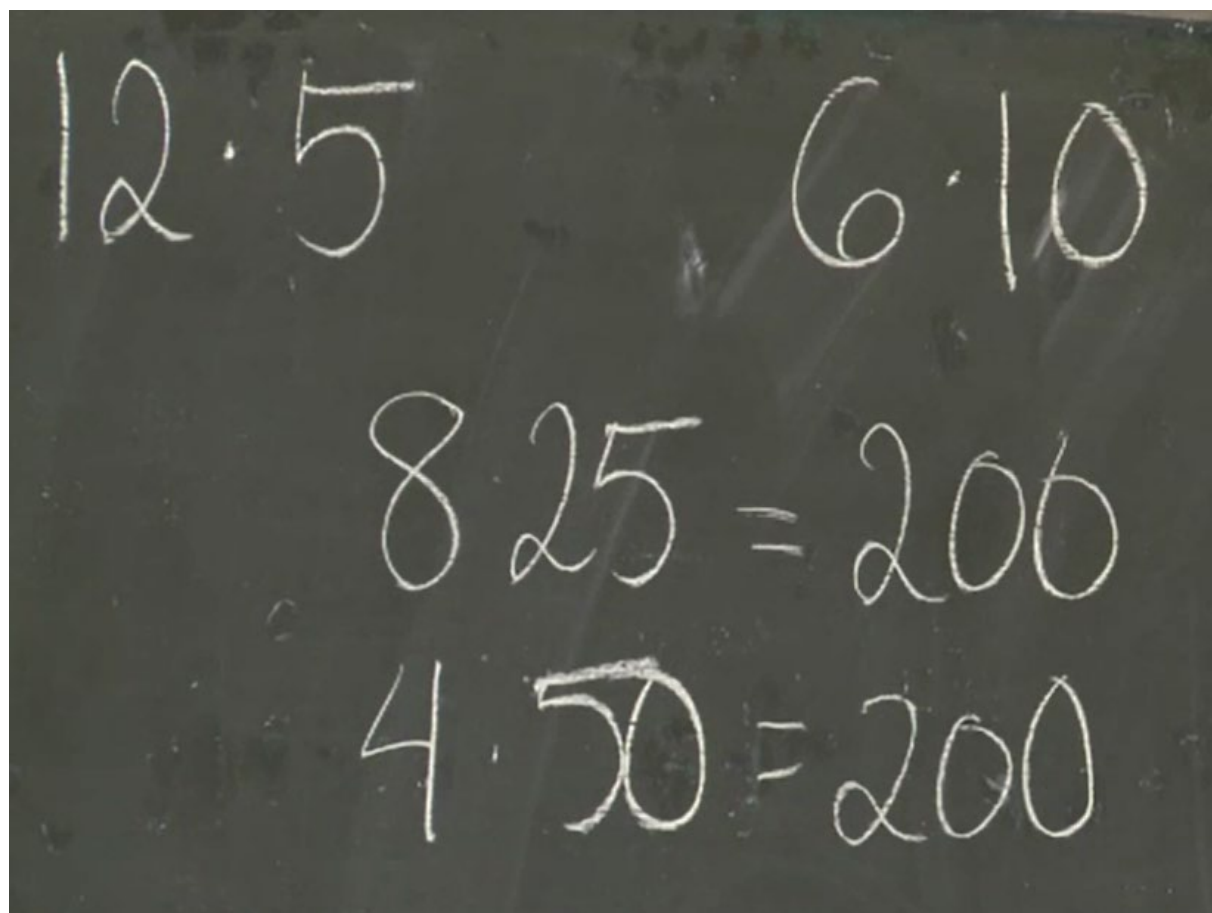 12 · 5 6 · 10
8 · 25 = 200
4 · 50 = 200